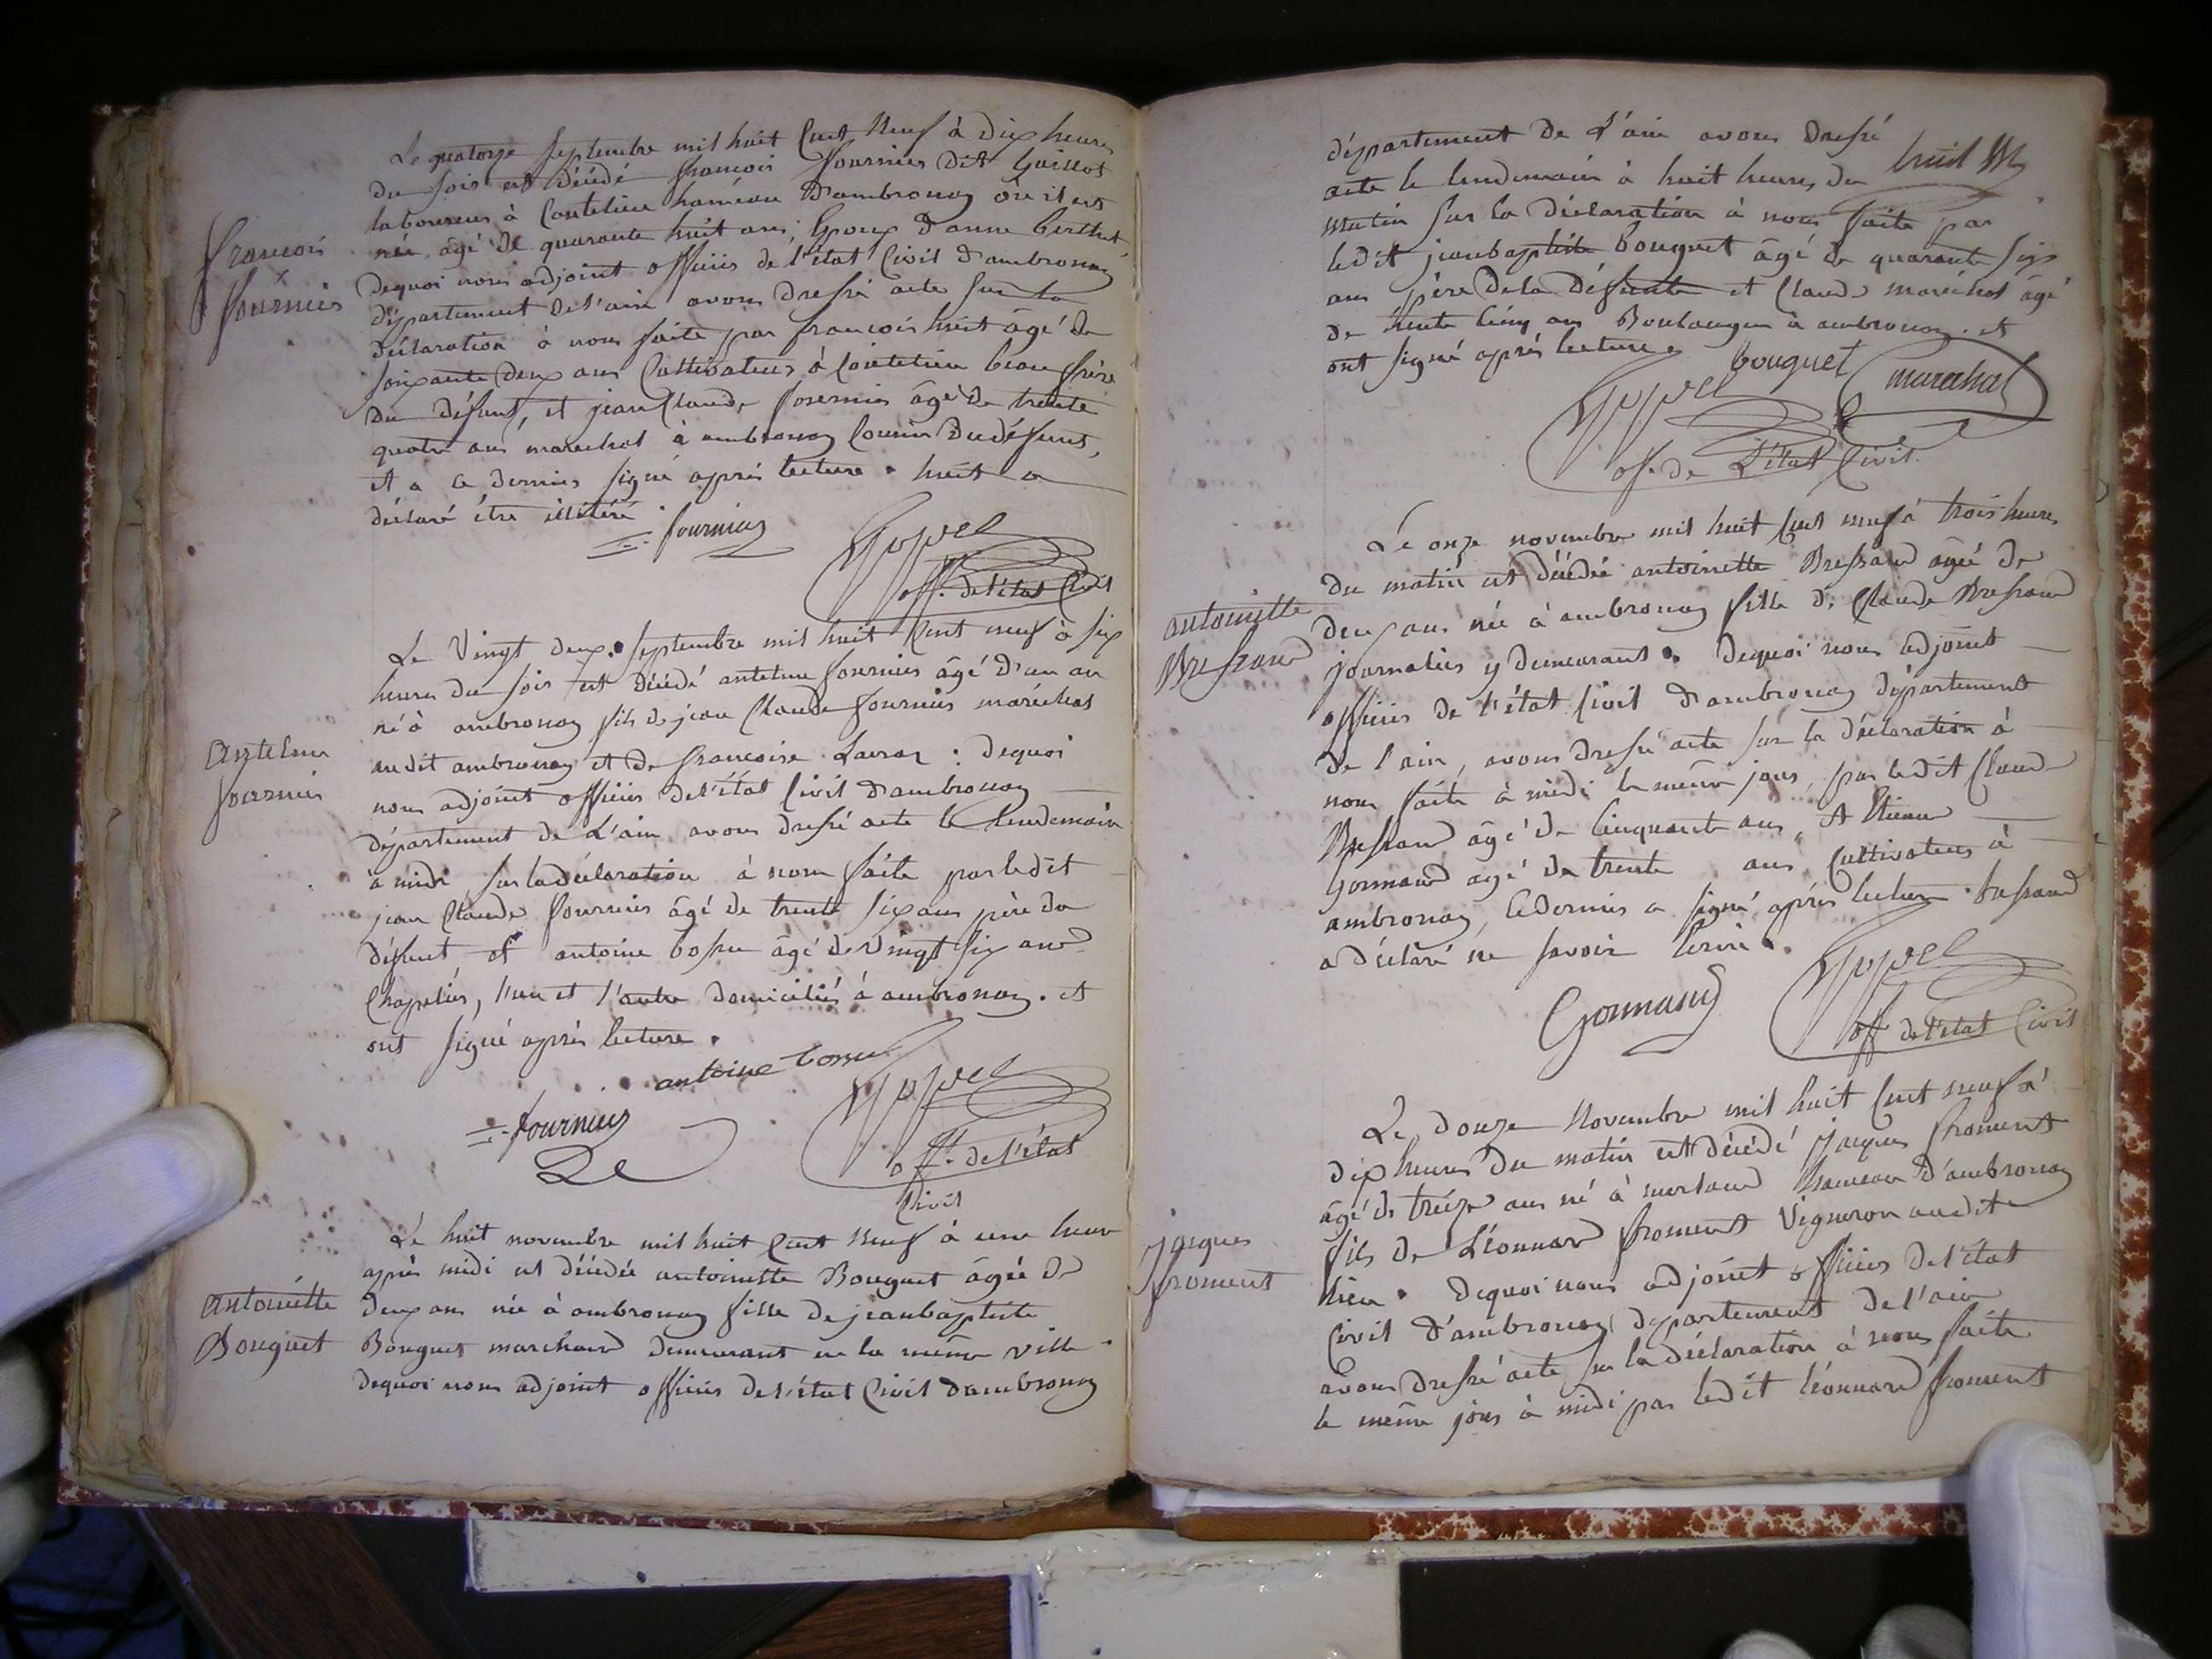 Le quatorze septembre mil huit cent neuf à dix heures
du soir est décédé françois fournier dit Gaillot
laboureur à Coutelieu hameau d'ambronay où il est
née, âgé de quarante huit ans, Epoux d'anne berthet
dequoi nous adjoint officier de l'état Civil d'ambronay
département de l'ain avons dressé acte sur la
déclaration à nous faite par francois huit âgé de
soixante deux ans Cultivateur à Coutelieu beau frère
du défunt, et jean Claude fournier âgé de trente
quatre ans, marechal à ambronay Cousin du défunt,
et a ce dernier signé après lecture. huit a
déclaré être illitéré
françois
fournier
fournier
off. de l'état Civil
Le Vingt deux septembre mil huit Cent neuf à six
heures du soir est décédé antelme fournier âgé d'un an
né à ambronay fils de jean Claude fournier maréchal
audit ambronay et de francoise : dequoi
nous adjoint officier de l'état Civil d'ambronay
département de L'ain avons dressé acte le lendemain
à midi sur la déclaration à nous faite par ledit
jean Claude fournier âgé de trente six ans père du
défunt et antoine bossu âgé de Vingt six ans
Chapelier, l'un et l'autre domiciliés à ambronay. et
ont signé après lecture.
Antelme
fournier
antoine bossu
fournier
off. de l'état
Civil
Le huit novembre mil huit Cent neuf à une heure
après midi est décédée antoinette Bouguet âgée de
deux ans née à ambronay fille de jeanbaptiste
Bouguet marchand demeurant en la même ville.
dequoi nous adjoint officier de l'état Civil dambronay
Antoinette
Bouguet
département de L'ain avons dressé
acte le lendemain à huit heures du
matin sur la déclaration à nous faite par
ledit jeanbaptiste bouguet âgé de quarante six
ans père de la défunte et Claude maréchal âgé
de trente Cinq ans Boulanger à ambronay. et
ont signé après lecture.
bouguet
marechal
of. de L'état Civil
Le onze novembre mil huit Cent neuf à trois heures
du matin est décédée antoinette Bressand âgée de
deux ans née à ambronay fille de Claude Bressand
journalier y demeurant. dequoi nous adjoint
officier de l'état Civil d'ambronay département
de l'ain, avons dressé acte sur la déclaration à
nous faite à midi le même jour, par ledit Claude
Bressand âgé de Cinquante ans, et Etienne
Gonnand âgé de trente ans, Cultivateur à
ambronay, le dernier a signé après lecture. bressand
a déclaré ne savoir Ecrire.
antoinette
Bressand
Gonnand
off de l'état Civil
Le douze Novembre mil huit Cent neuf à
dix heures du matin est décédé jacques froment
âgé de treize ans né à merland hameau d'ambronay
fils de Léonnard froment Vigneron audit
lieu. dequoi nous adjoint officier de l'état
Civil d'ambronay département de l'ain
avons dressé acte sur la déclaration à nous faite
le même jour à midi par ledit léonnard froment
jacques
froment